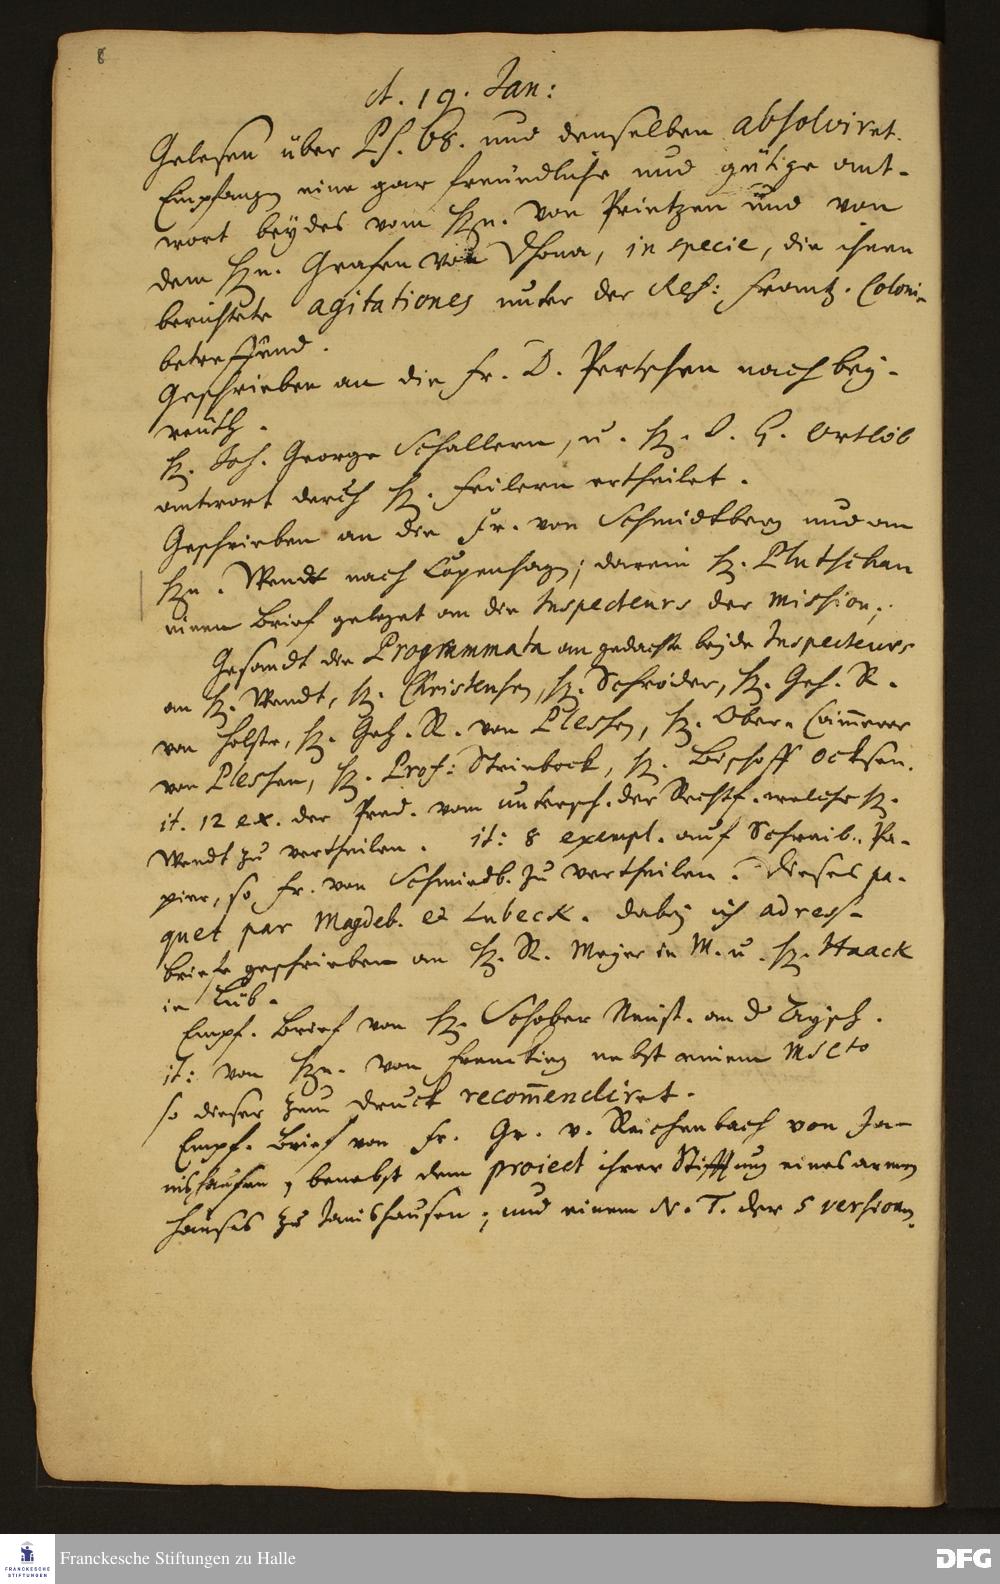 8
d. 19. Jan:
Gelesen über Ps. 68. und denselben absolviret.
Empfangen eine gar freundliche und gütige ant-
wort beydes vom Hrn. von Printzen und von
dem Hrn. Grafen von Dhona, in specie, die ihnen
berichtete agitationes unter der Ref: Frantz. Colonie
betreffend.
Geschrieben an die Fr. D. Pertschen nach Bey-
reuth.
H. Joh. George Schallern, u. H. D. H. Ortlob
antwort durch H. Feilern ertheilet.
Geschrieben an die Fr. von Schmidtberg und an
Hrn. Wendt nach Copenhagen; darein H. Plutschau
einen Brief geleget an die Inspecteurs der Mission;
Gesandt die Programmata an gedachte beyde Inspecteurs
an H. Wendt, H. Christensen, H. Schröder, H. Geh. R.
von Holste, H. Geh. R. von Plessen, H. Ober-Cammerer
von Plessen, H. Prof: Steinbock, H. Bischoff Ocksen.
it. 12 ex. der Pred. vom untersch. der Rechtf. welche H.
Wendt zu vertheilen. it: 8 exempl. auf Schreib-Pa-
pier, so Fr. von Schmiedb. zu vertheilen. Dieses pa-
quet par Magdeb. et Lubeck. dabey ich adress-
briefe geschrieben an H. R. Meyer in M. u. H. Haack
in Lüb.
Empf. Brief von H. Schober
it: von Hrn. von nebst einem Mscto
so dieser zum druck recommendiret.
Empf. Brief von Fr. Gr. v. Reichenbach von Ja-
nishausen, benebst dem project ihrer Stifftung eines armen
Hauses zu Janishausen; und einem N. T. der 5 versionen.
Franckesche Stiftungen zu Halle
FRANCKESCHE
STIFTUNGEN
DFG